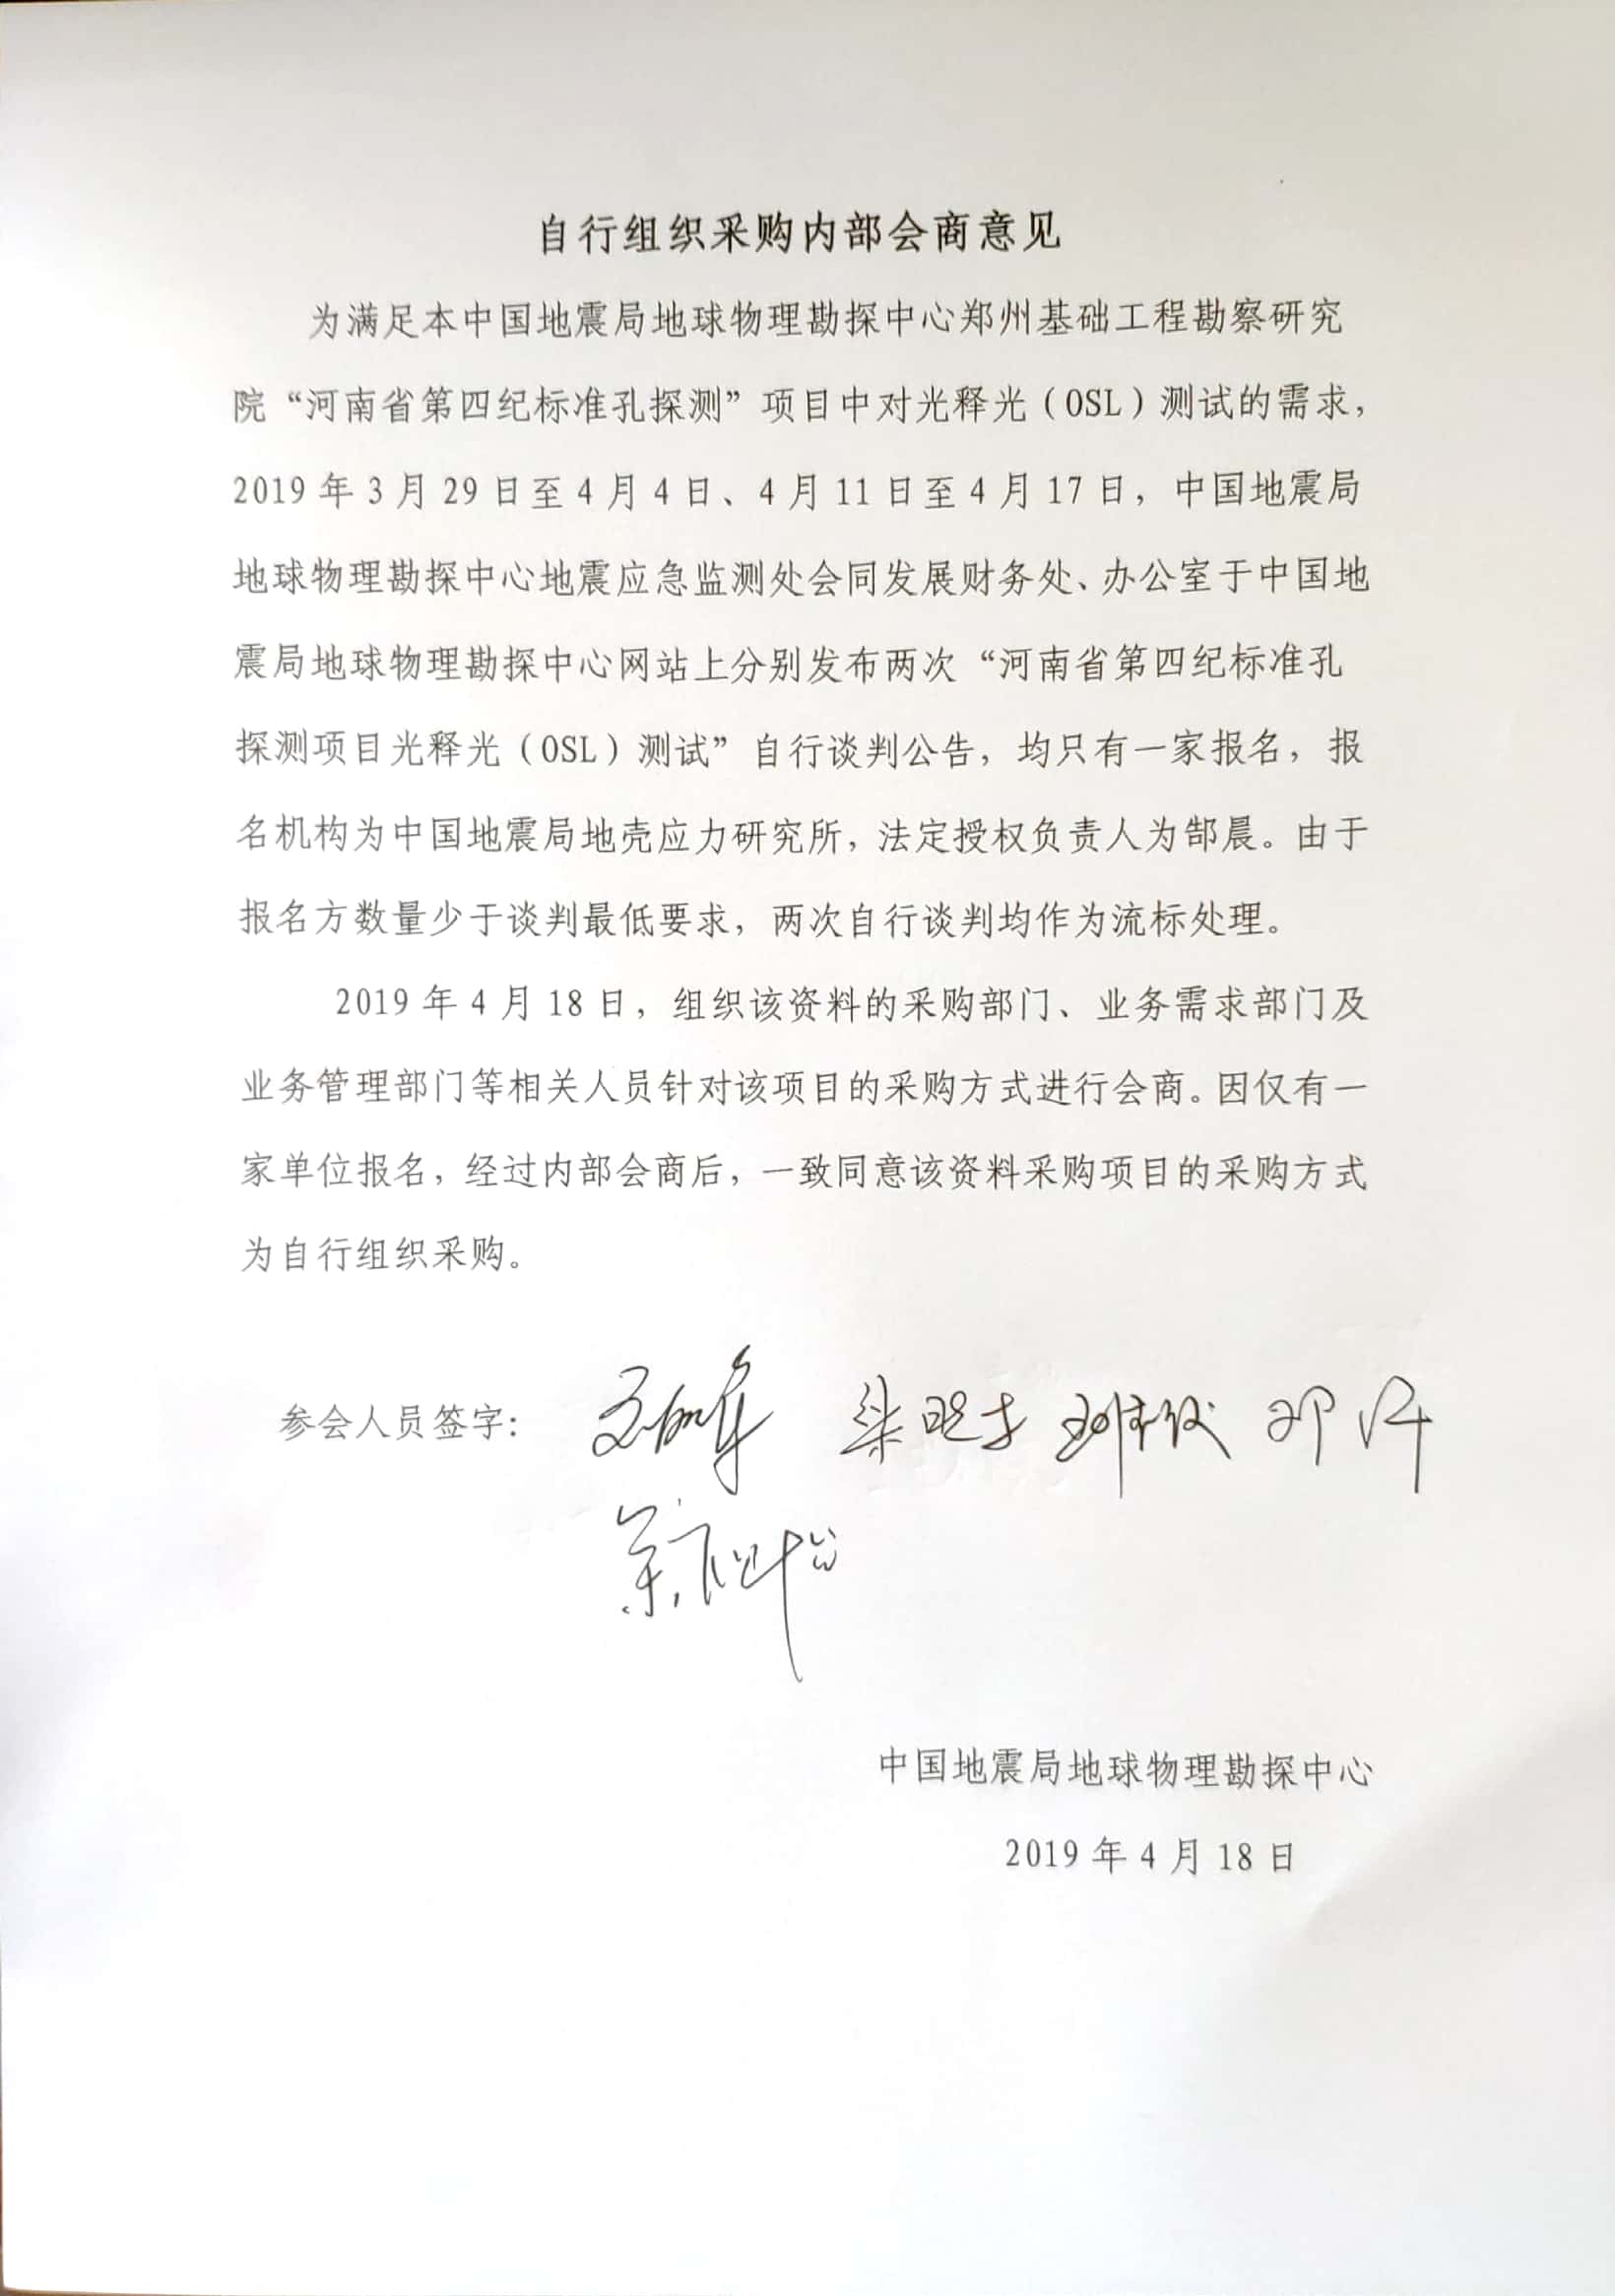 自行组织采购内部会商意见
为满足本中国地震局地球物理勘探中心郑州基础工程勘察研究
院“河南省第四纪标准孔探测”项目中对光释光（OSL）测试的需求，
2019年3月29日至4月4日、4月11日至4月17日，中国地震局
地球物理勘探中心地震应急监测处会同发展财务处、办公室于中国地
震局地球物理勘探中心网站上分别发布两次“河南省第四纪标准孔
探测项目光释光（OSL）测试”自行谈判公告，均只有一家报名，报
名机构为中国地震局地壳应力研究所，法定授权负责人为郜晨。由于
报名方数量少于谈判最低要求，两次自行谈判均作为流标处理。
2019年4月18日，组织该资料的采购部门、业务需求部门及
业务管理部门等相关人员针对该项目的采购方式进行会商。因仅有一
家单位报名，经过内部会商后，一致同意该资料采购项目的采购方式
为自行组织采购。
参会人员签字：
中国地震局地球物理勘探中心
2019年4月18日